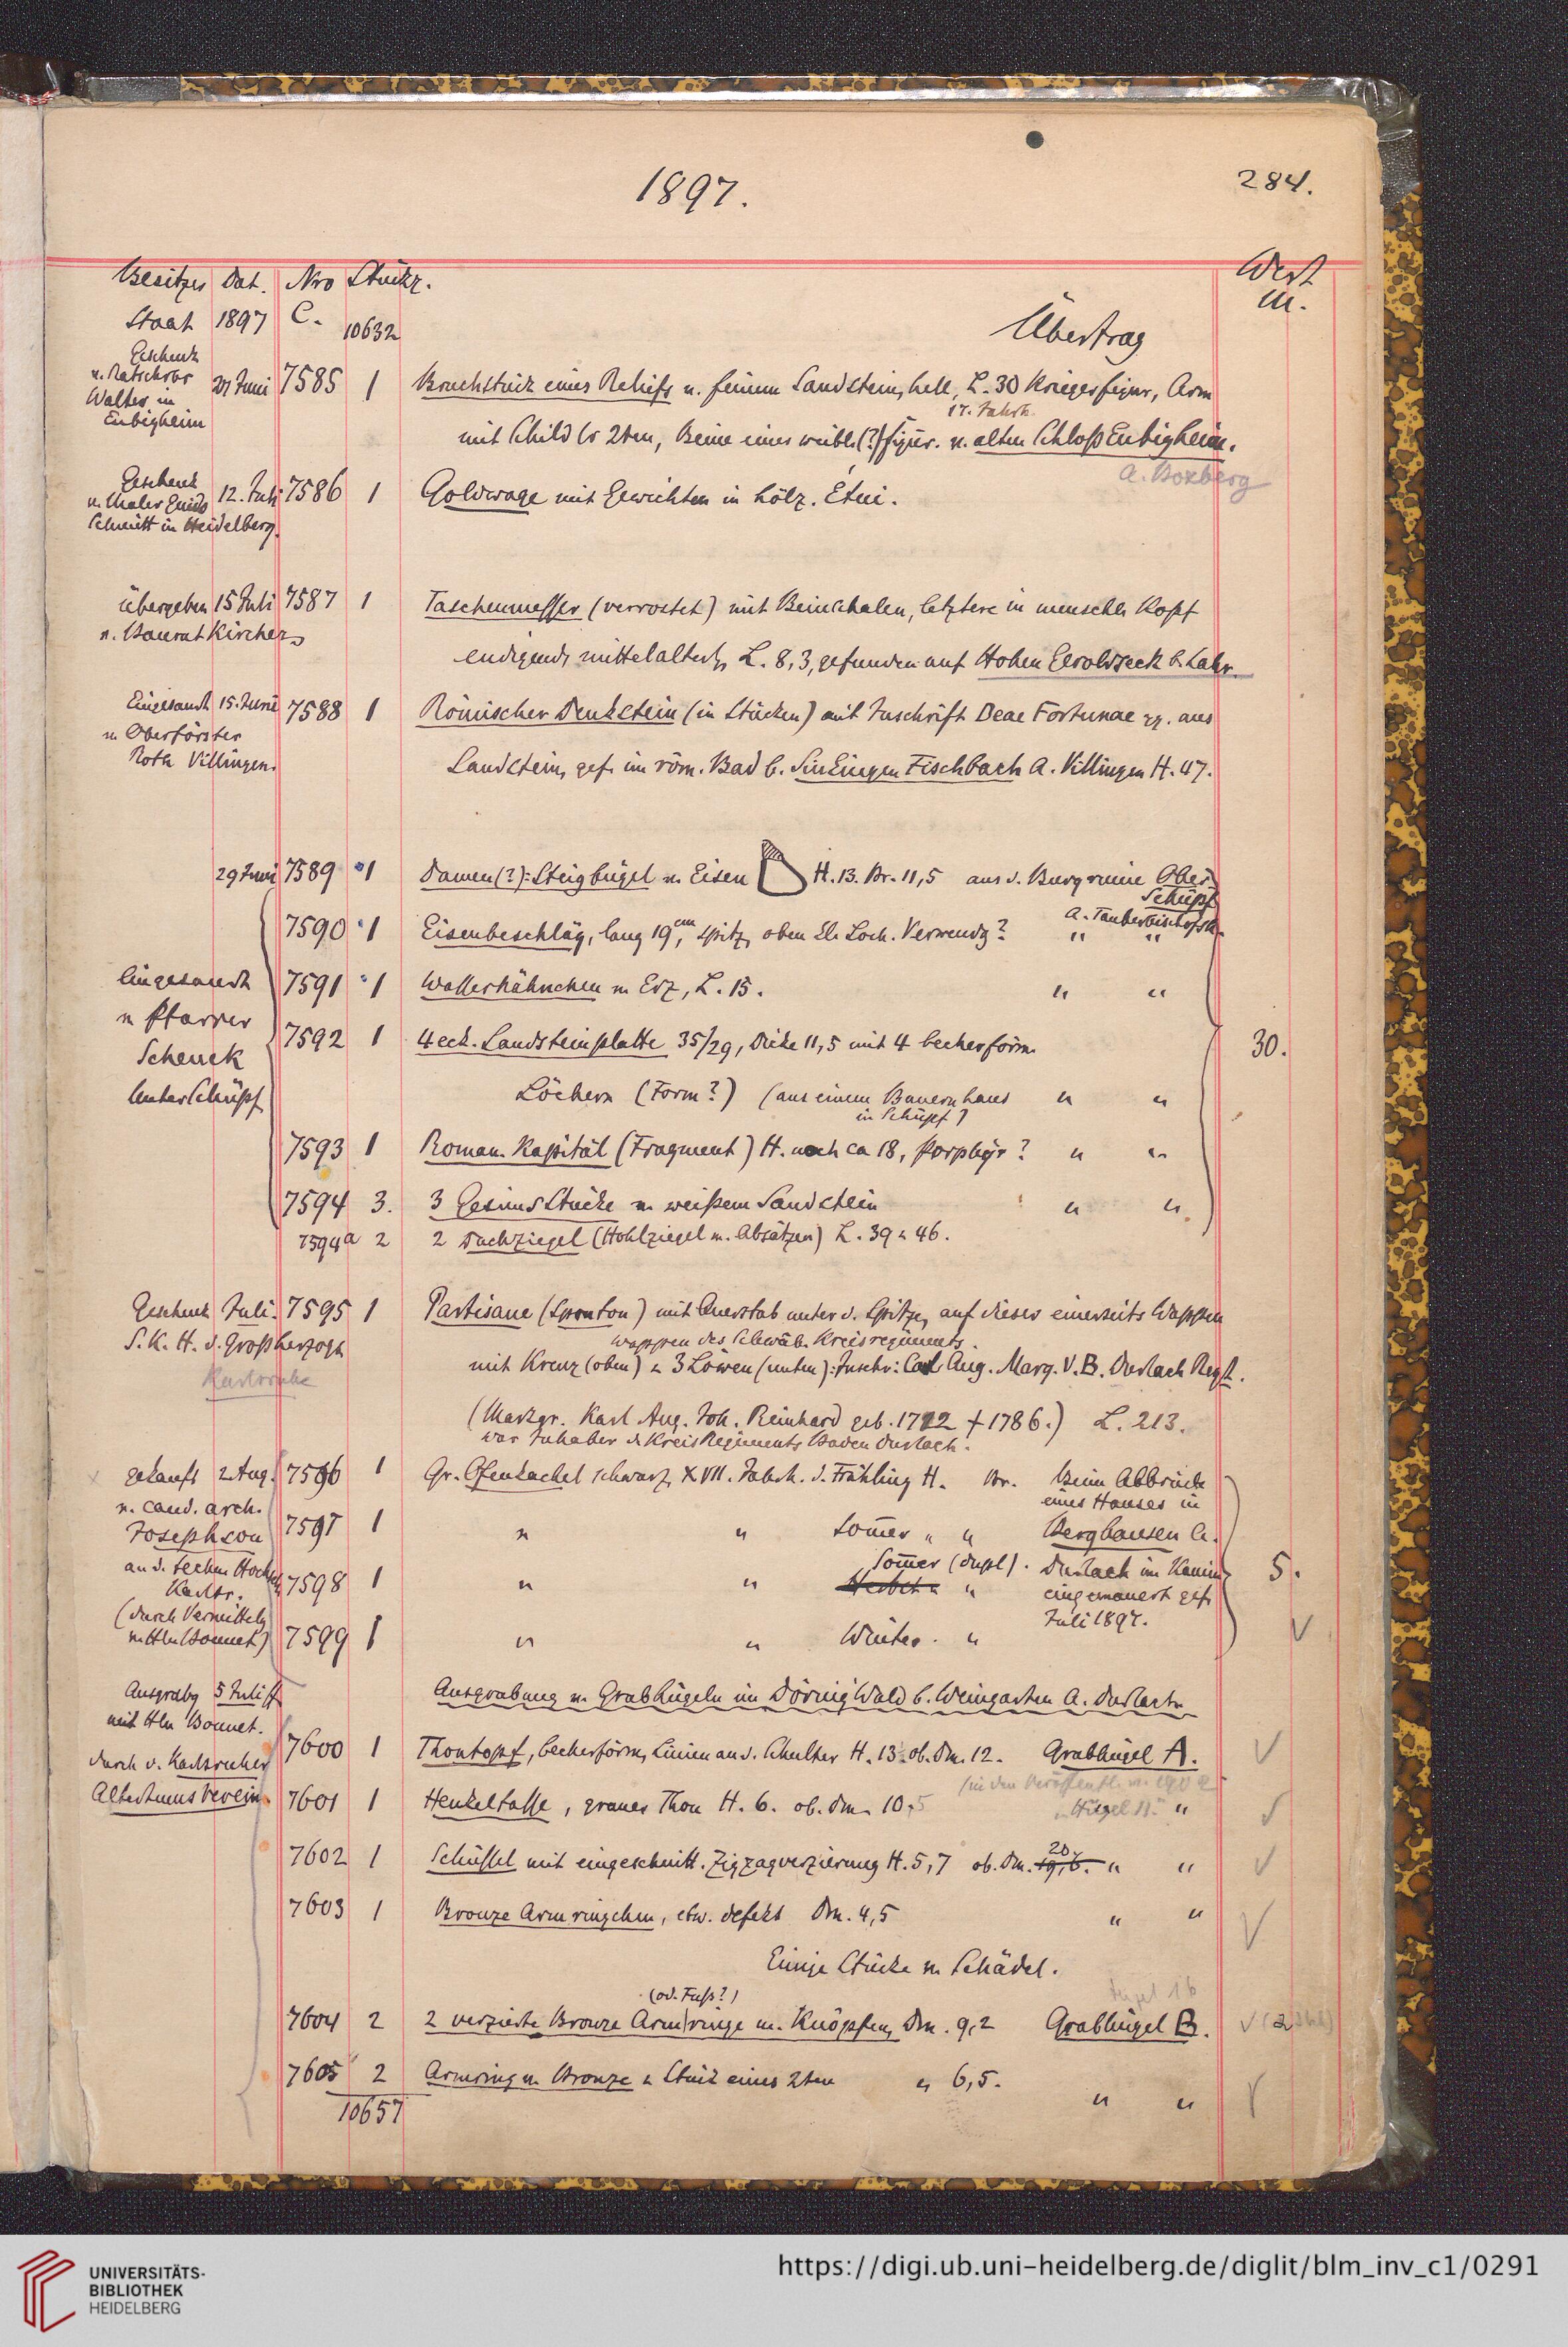 1897.
284.
Besitzer Dat. Nro Stückz.
Wert
M.
Staat 1897 C. 10632
Übertrag
Geschenk
v. Ratschrbr
Walter in
Eubigheim
Juni 7585 1 Bruchstück eines Reliefs v. feinem Sandstein, hell, L. 30 Kriegerfigur, Arm
17. Jahrh.
mit Schild 2ten, Beine eines weibl. (?) Figur. v. alten Schloß Eubigheim.
A. Boxberg
Geschenk
v. Maler Guido
Schmitt in Heidelberg.
12. Juli 7586 1 Goldwage mit Gewichten in hölz. Etui.
übergeben 15 Juli 7587 1 Taschenmesser (verrostet) mit Beinschalen, letztere in menschl. Kopf
v. Baurat Kircher
endigend, mittelalterl., L. 8,3, gefunden auf Hohen Geroldseck b. Lahr.
Eingesandt 15. Juni 7588 1 Römischer Denkstein (in Stücken) mit Inschrift Deae Fortunae rz. aus
v. Oberförster
Roth Villingen.
Sandstein, gef. im röm. Bad b. Sinkingen Fischbach A. Villingen H. 47.
29 Juni 7589 1 Damen(?)-Steigbügel v. Eisen H. 13. Br. 11,5 aus d. Burgruine Ober-
Schüpf
A. Tauberbischofsh.
7590 1 Eisenbeschläg, lang 19 cm, spitz, oben Loch. Verwendg? " "
Eingesandt
v. Pfarrer
Schenck
Unter Schüpf
7591 1 Wasserhähnchen v. Erz, L. 15. " "
7592 1 4eck. Sandsteinplatte 35/29, Dicke 11,5 mit 4 becherförm.
30.
Löchern (Form?) (aus einem Bauernhaus " "
in Schüpf)
7593 1 Roman. Kapitäl (Fragment) H. noch ca 18, Porphyr? " "
7594 3. 3 Gesims Stücke v. weißem Sandstein " "
7594a 2 2 Dachziegel (Hohlziegel m. Absätzen) L. 39 u 46.
Geschenk Juli. 7595 1 Partisane (Sponton) mit Querstab unter d. Spitze, auf dieser einerseits Wappen
S. K. H. d. Großherzogs
Karlsruhe
Wappen des Schwäb. Kreisregiments.
mit Kreuz (oben) u 3 Löwen (unten): Inschr: Carl Aug. Marg. V. B. Durlach Regt.
(Markgr. Karl Aug. Joh. Reinhard geb. 1712 † 1786.) L. 213.
war Inhaber d. KreisRegiments Baden Durlach.
gekauft 2 Aug. 7596 1 Gr. Ofenkachel schwarz, XVII. Jahrh. d. Frühling H. Br. Beim Abbruch
eines Hauses in
v. cand. arch.
Josephson
7597 1 " " Sommer " " Berghausen A.
an d. techn. Hochsch.
Karlsr.
Sommer (dupl).
7598 1 " " Herbst " " Durlach im Kamin
5.
eingemauert gef.
Juli 1897.
(durch Vermittelg
v. Hln Bonnet)
7599 1 " " Winter. "
Ausgrabg 5 Juli ff
mit Hln Bonnet.
Ausgrabung v. Grabhügeln im Dörnig Wald b. Weingarten A. Durlach
durch d. Karlsruher
Altertums Verein
7600 1 Thontopf, becherförm, Linien an d. Schulter H. 13. ob. Dm. 12. Grabhügel A.
(in den Veröffentl. v.
7601 1 Henkeltasse, graues Thon H. 6. ob. Dm. 10,5 Hügel " "
7602 1 Schüssel mit eingeschnitt. Zigzagverzierung H. 5,7 ob. Dm. 19,6. 20 " "
7603 1 Bronze Armringchen, etw. defekt Dm. 4,5 " "
Einige Stücke v. Schädel.
(od. Fuß?)
7604 2 2 verzierte Bronze Armringe m. Knöpfen, Dm. 9,2 Grabhügel B.
7605 2 Armring v. Bronze u Stück eines 2ten " 6,5. " "
10657
UNIVERSITÄTS-
BIBLIOTHEK
HEIDELBERG
https://digi.ub.uni-heidelberg.de/diglit/blm_inv_c1/0291